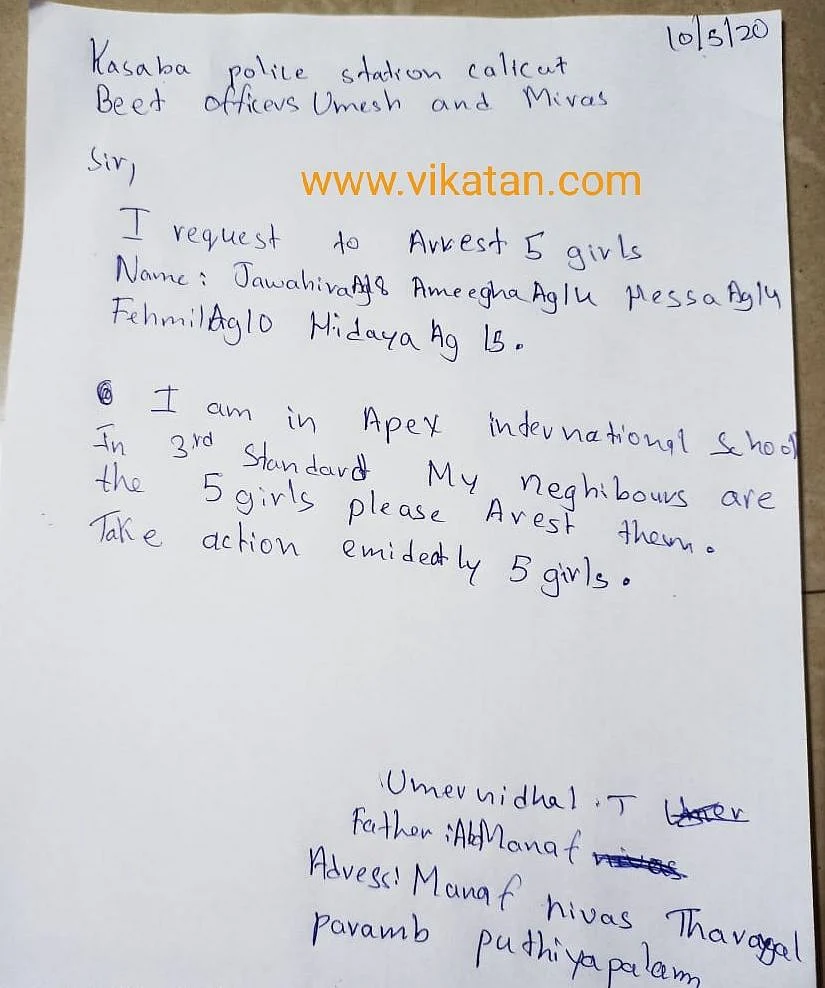 10/5/20
Kasaba police station calicut
Beet officers Umesh and Niras
Sir,
www.vikatan.com
I request to Arrest 5 girls
Name: JawahiraAg8 AmeeghaAg14 NessaAg14
FehmilAg10 Hidaya Ag 15.
I am in Apex international school
In 3rd Standard My neghibours are
the 5 girls please Arest them.
Take action emideatly 5 girls.
Umer nidhal .T
Father :AbManaf
Adress: Manaf nivas
paramb puthiyapalam